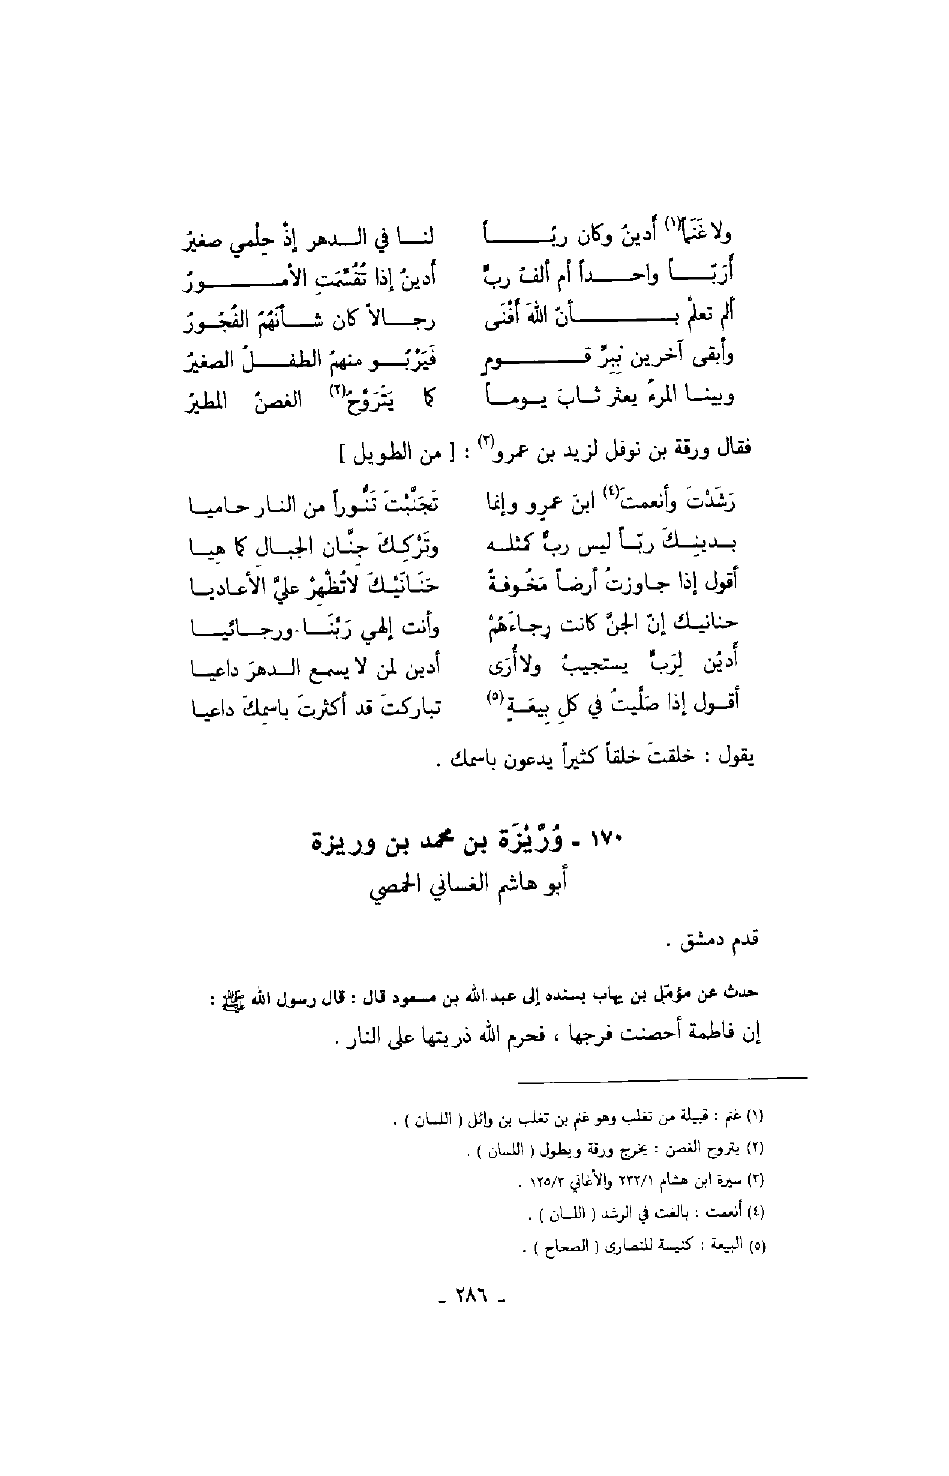 ولا غَنَماً(١) أدينُ وكان ربّاً لنا في الدهر إذْ حِلْمي صغيرُ
أرَبّاً واحداً أم ألفَ ربٍّ أدينُ إذا تُقُسِّمَتِ الأمورُ
ألم تعلمْ بأنَّ اللهَ أفْنَى رجالاً كان شأنَهُمُ الفُجورُ
وأبقى آخرين بِبِرِّ قومٍ فَيَرْبُو منهمُ الطفلُ الصغيرُ
وبينا المرءُ يعثر ثابَ يوماً كما يَتَرَوَّحُ(٢) الغصنُ المطيرُ
فقال ورقة بن نوفل لزيد بن عمرو(٣) : [ من الطويل ]
رَشَدْتَ وأنعمتَ(٤) ابنَ عمرٍو وإنما تَجَنَّبْتَ تَنُّوراً من النار حاميا
بدينِكَ ربّاً ليس ربٌّ كمثله وتَرْكِكَ جِنَّان الجبالِ كما هيا
أقول إذا جاوزتُ أرضاً مَخُوفةً حَنَانَيْكَ لاتُظْهِرْ عليَّ الأعاديا
حنانيك إنّ الجنَّ كانت رجاءَهُمْ وأنت إلهي رَبَّنَا ورجائيا
أدِيْن لِرَبٍّ يستجيبُ ولاأُرَى أدين لمن لا يسمع الدهرَ داعيا
أقول إذا صَلَّيتُ في كلِ بِيعَةٍ(٥) تباركتَ قد أكثرتَ باسمِكَ داعيا
يقول : خلقتَ خلقاً كثيراً يدعون باسمك .
١٧٠ ـ وُرَيْزَة بن محمد بن وريزة
أبو هاشم الغساني الحمصي
قدم دمشق .
حدث عن مؤمّل بن يهاب بسنده إلى عبد الله بن مسعود قال : قال رسول الله ﷺ :
إن فاطمة أحصنت فرجها ، فحرم الله ذريتها على النار .
(١) غنم : قبيلة من تغلب وهو غنم بن تغلب بن وائل ( اللسان ) .
(٢) يتروح الغصن : يخرج ورقة ويطول ( اللسان ) .
(٣) سيرة ابن هشام ٢٣٢/١ والأغاني ١٢٥/٣ .
(٤) أنعمت : بالغت في الرشد ( اللسان ) .
(٥) البيعة : كنيسة للنصارى ( الصحاح ) .
ـ ٢٨٦ ـ